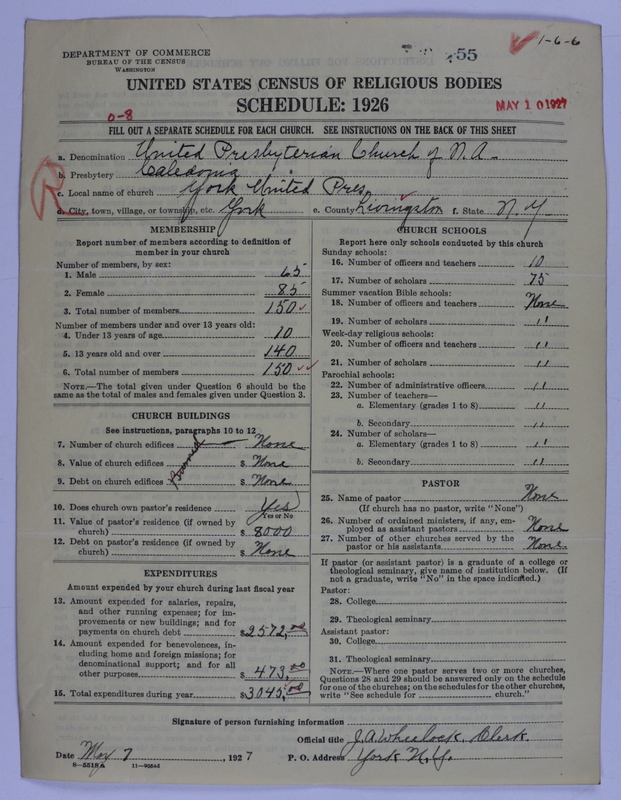 DEPARTMENT OF COMMERCE
BUREAU OF THE CENSUS
WASHINGTON
55
1-6-6
UNITED STATES CENSUS OF RELIGIOUS BODIES
SCHEDULE: 1926
MAY 10 1927
0-8
FILL OUT A SEPARATE SCHEDULE FOR EACH CHURCH. SEE INSTRUCTIONS ON THE BACK OF THIS SHEET
a. Denomination United Presbyterian Church of N.A.
b. Presbytery Caledonia
c. Local name of church York United Pres.
d. City, town, village, or township, etc. York e. County Livingston f. State N.Y.
MEMBERSHIP
Report number of members according to definition of member in your church
Number of members, by sex:
1. Male 65
2. Female 85
3. Total number of members 150
Number of members under and over 13 years old:
4. Under 13 years of age 10
5. 13 years old and over 140
6. Total number of members 150
NOTE.—The total given under Question 6 should be the
same as the total of males and females given under Question 3.
CHURCH BUILDINGS
See instructions, paragraphs 10 to 12
7. Number of church edifices None
Burned
8. Value of church edifices $ None
9. Debt on church edifices $ None
10. Does church own pastor's residence Yes
Yes or No
11. Value of pastor's residence (if owned by
church) $ 8000
12. Debt on pastor's residence (if owned by
church) $ None
EXPENDITURES
Amount expended by your church during last fiscal year
13. Amount expended for salaries, repairs,
and other running expenses; for im-
provements or new buildings; and for
payments on church debt $2572.00
14. Amount expended for benevolences, in-
cluding home and foreign missions; for
denominational support; and for all
other purposes $ 473.00
15. Total expenditures during year $3045.00
CHURCH SCHOOLS
Report here only schools conducted by this church
Sunday schools:
16. Number of officers and teachers 10
17. Number of scholars 75
Summer vacation Bible schools:
18. Number of officers and teachers None
19. Number of scholars "
Week-day religious schools:
20. Number of officers and teachers "
21. Number of scholars "
Parochial schools:
22. Number of administrative officers "
23. Number of teachers—
a. Elementary (grades 1 to 8) "
b. Secondary "
24. Number of scholars—
a. Elementary (grades 1 to 8) "
b. Secondary "
PASTOR
25. Name of pastor None
(If church has no pastor, write "None")
26. Number of ordained ministers, if any, em-
ployed as assistant pastors None
27. Number of other churches served by the
pastor or his assistants None
If pastor (or assistant pastor) is a graduate of a college or
theological seminary, give name of institution below. (If
not a graduate, write "No" in the space indicated.)
Pastor:
28. College
29. Theological seminary
Assistant pastor:
30. College
31. Theological seminary
NOTE.—Where one pastor serves two or more churches,
Questions 28 and 29 should be answered only on the schedule
for one of the churches; on the schedules for the other churches,
write "See schedule for church."
Signature of person furnishing information
Official title J.A. Wheelock, Clerk.
Date May 7, 1927 P. O. Address York N.Y.
8-5518A 11-9